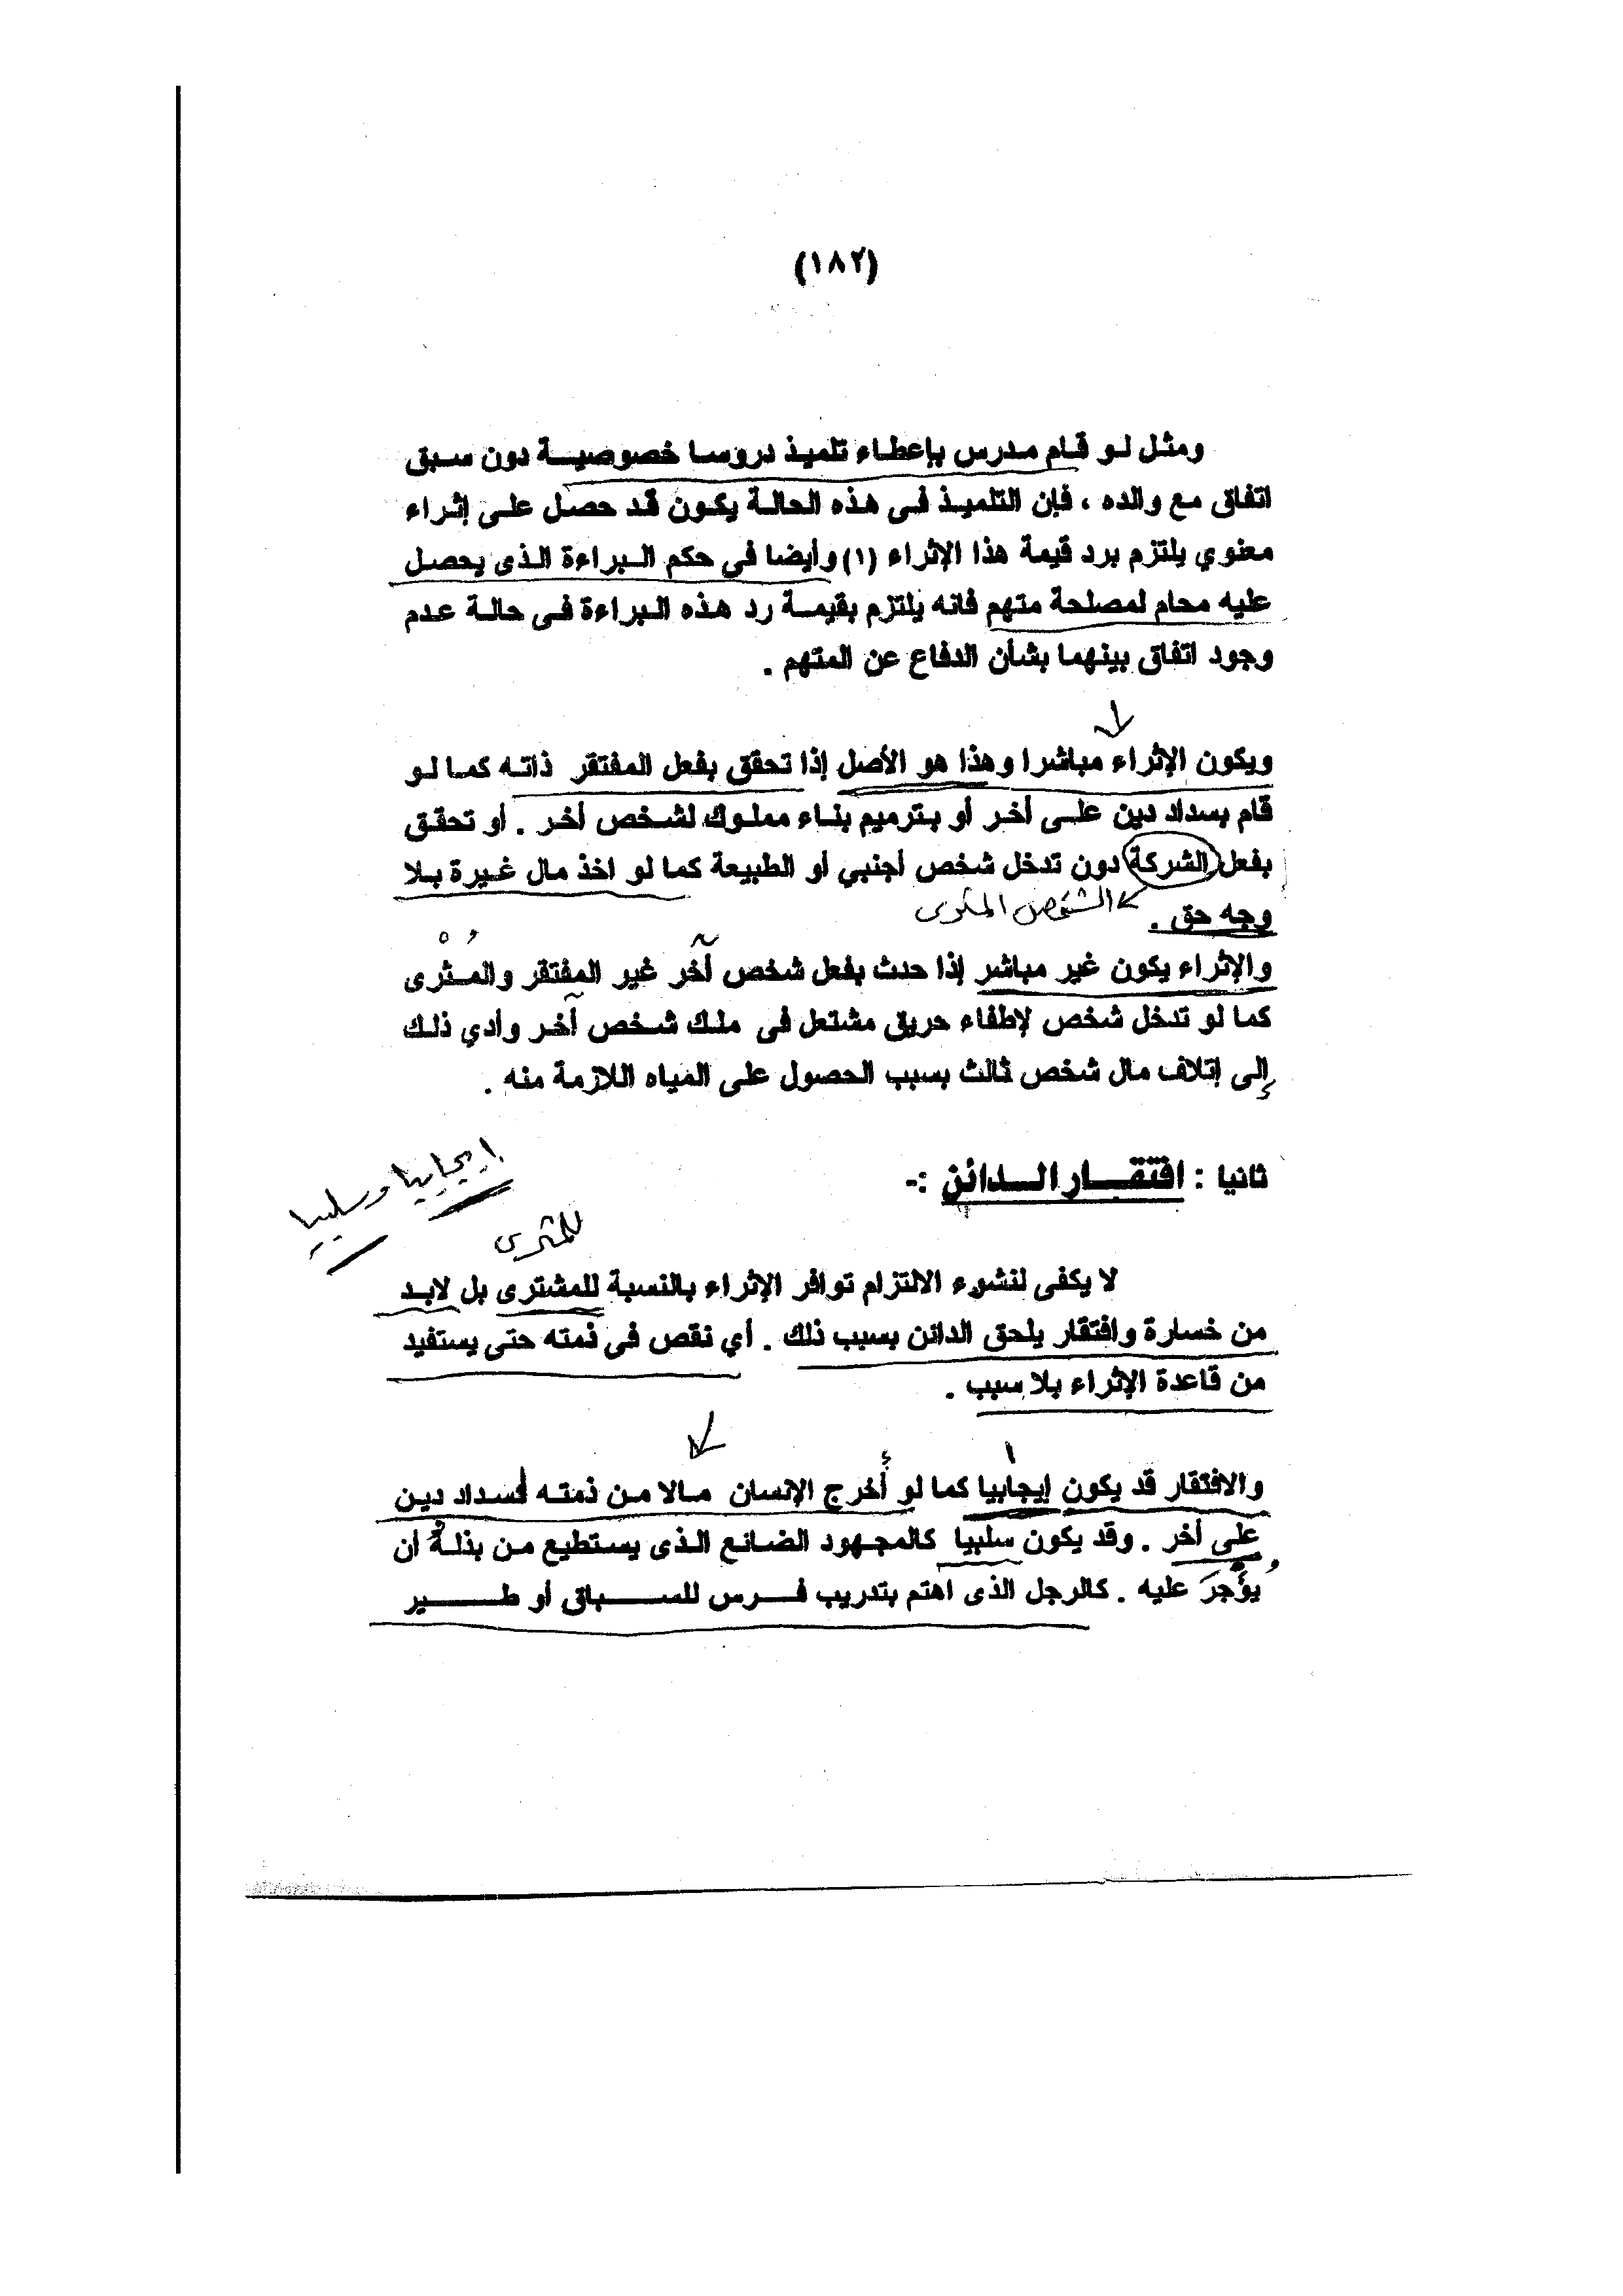 (١٨٢)
ومثل لو قام مدرس بإعطاء تلميذ دروسا خصوصية دون سبق
اتفاق مع والده ، فإن التلميذ فى هذه الحالة يكون قد حصل على إثراء
معنوي يلتزم برد قيمة هذا الإثراء (١) وأيضا فى حكم البراءة الذى يحصل
عليه محام لمصلحة متهم فانه يلتزم بقيمة رد هذه البراءة فى حالة عدم
وجود اتفاق بينهما بشأن الدفاع عن المتهم .
ويكون الإثراء مباشرا وهذا هو الأصل إذا تحقق بفعل المفتقر ذاته كما لو
قام بسداد دين على أخر أو بترميم بناء مملوك لشخص أخر . أو تحقق
بفعل الشركة دون تدخل شخص أجنبي أو الطبيعة كما لو اخذ مال غيرة بلا
الشخص المثرى
وجه حق .
والإثراء يكون غير مباشر إذا حدث بفعل شخص آخر غير المفتقر والمُثْرى
كما لو تدخل شخص لإطفاء حريق مشتعل فى ملك شخص آخر وأدي ذلك
إلى إتلاف مال شخص ثالث بسبب الحصول على المياه اللازمة منه .
ثانيا : افتقار الدائن :-
إيجابيا وسلبيا
للمثرى
لا يكفى لنشوء الالتزام توافر الإثراء بالنسبة للمشترى بل لابد
من خسارة وافتقار يلحق الدائن بسبب ذلك . أي نقص فى ذمته حتى يستفيد
من قاعدة الإثراء بلا سبب .
والافتقار قد يكون إيجابيا كما لو أخرج الإنسان مالا من ذمته لسداد دين
على أخر . وقد يكون سلبيا كالمجهود الضائع الذى يستطيع من بذلة أن
يُؤَجرَ عليه . كالرجل الذى اهتم بتدريب فرس للسباق أو طير